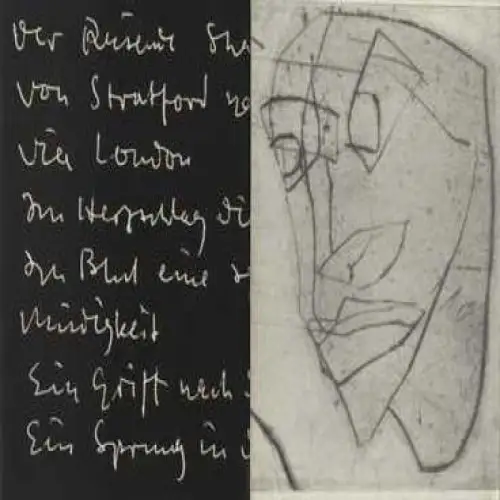 Der Reisende Sha
von Stratford na
via London
Im Herzschlag di
Im Blut eine
Müdigkeit
Ein Griff nach
Ein Sprung in d